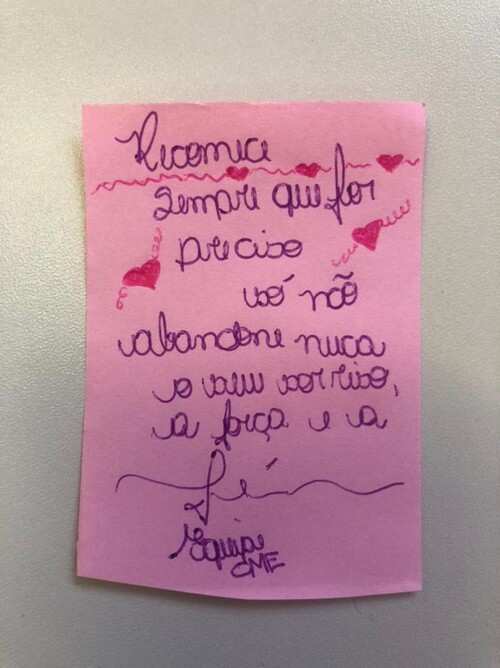 Recomece
sempre que for
preciso
só não
abandone nuca
o seu sorriso,
a força e a
fé
Equipe
CME